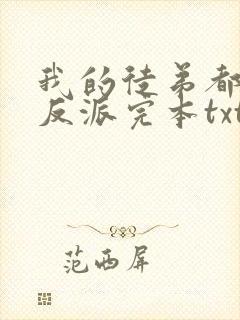 我的徒弟都
反派完本txt
范西屏